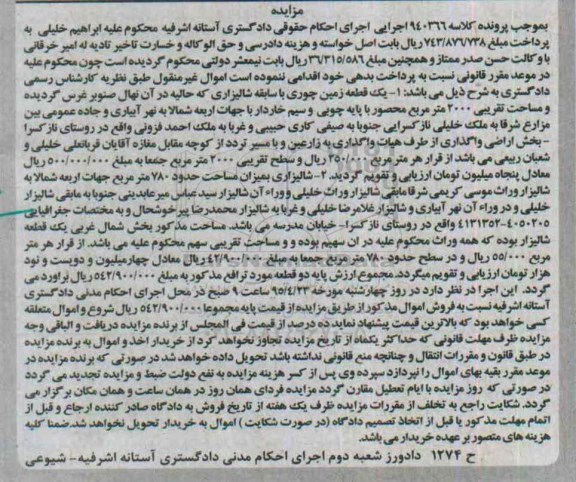 مزایده
بموجب پرونده کلاسه ۹۴۰۳۶۶ اجرایی اجرای احکام حقوقی دادگستری آستانه اشرفیه محکوم علیه ابراهیم خلیلی به
پرداخت مبلغ ۷۴۳/۸۷۶/۷۳۸ ریال بابت اصل خواسته و هزینه دادرسی و حق الوکاله و خسارت تاخیر تادیه له امیر خرقانی
با وکالت حسن صدر ممتاز و همچنین مبلغ ۳۶/۳۱۵/۵۸۶ ریال بابت نیمعشر دولتی محکوم گردیده است چون محکوم علیه
در موعد مقرر قانونی نسبت به پرداخت بدهی خود اقدامی ننموده است اموال غیر منقول طبق نظریه کارشناس رسمی
دادگستری به شرح ذیل می باشد: ۱- یک قطعه زمین چوری با سابقه شالیزاری که حالیه در آن نهال صنوبر غرس گردیده
و مساحت تقریبی ۲۰۰۰ متر مربع محصور با پایه چوبی و سیم خاردار با جهات اربعه شمالا به نهر آبیاری و جاده عمومی بین
مزارع شرقا به ملک خلیلی ناز کسرایی جنوبا به صیفی کاری حبیبی و غربا به ملک احمد فزونی واقع در روستای ناز کسرا
- بخش اراضی واگذاری از طرف هیات واگذاری به زارعین و با مسیر تردد از کوچه مقابل مغازه آقایان قربانعلی خلیلی و
شعبان ربیعی می باشد از قرار هر متر مربع ۲۵۰/۰۰۰ ریال و سطح تقریبی ۲۰۰۰ متر مربع جمعا به مبلغ ۵۰۰/۰۰۰/۰۰۰ ریال
معادل پنجاه میلیون تومان ارزیابی و تقویم گردید. ۲- شالیزاری بمیزان مساحت حدود ۷۸۰ متر مربع جهات اربعه شمالا به
شالیزار وراث موسی کریمی شرقا مابقی شالیزار وراث خلیلی و وراء آن شالیزار سید عباس میر عابدیتی جنوبا به مابقی شالیزار
خلیلی و در وراء آن نهر آبیاری و شالیزار غلامرضا خلیلی و غربا به شالیزار محمدرضا پیر خوشحال و به مختصات جغرافیایی
۴۰۵۰۲۰۵-۴۱۳۱۳۵۲ واقع در روستای ناز کسرا - خیابان مدرسه می باشد. مساحت مذکور بخش شمال غربی یک قطعه
شالیزار بوده که همه وراث محکوم علیه در ان سهیم بوده و و مساحت تقریبی سهم محکوم علیه می باشد. از قرار هر متر
مربع ۵۵/۰۰۰ ریال و در سطح حدود ۷۸۰ متر مربع جمعا به مبلغ ۴۲/۹۰۰/۰۰۰ ریال معادل چهار میلیون و دویست و نود
هزار تومان ارزیابی و تقویم میگردد. مجموع ارزش پایه دو قطعه مورد ترافع مذکور به مبلغ ۵۴۲/۹۰۰/۰۰۰ ریال براورد می
گردد. این اجرا در نظر دارد در روز چهارشنبه مورخه ۹۵/۴/۲۳ ساعت ۹ صبح در محل اجرای احکام مدنی دادگستری
آستانه اشرفیه نسبت به فروش اموال مذکور از طریق مزایده از قیمت پایه مجموعا ۵۴۲/۹۰۰/۰۰۰ ریال شروع و اموال متعلقه
کسی خواهد بود که بالاترین قیمت پیشنهاد نماید ده درصد از قیمت فی المجلس از برنده مزایده دریافت و الباقی وجه
مزایده ظرف مهلت قانونی که حداکثر یکماه از تاریخ مزایده تجاوز نخواهد کرد از خریدار اخذ و اموال به برنده مزایده
در طبق قانون و مقررات انتقال و چنانچه منع قانونی نداشته باشد تحویل داده خواهد شد در صورتی که برنده مزایده در
موعد مقرر بقیه بهای اموال را نپردازد سپرده وی پس از کسر هزینه مزایده به نفع دولت ضبط و مزایده تجدید می گردد
در صورتی که روز مزایده با ایام تعطیل مقارن گردد مزایده فردای همان روز در همان ساعت و همان مکان برگزار می
گردد. شکایت راجع به تخلف از مقررات مزایده ظرف یک هفته از تاریخ فروش به دادگاه صادر کننده ارجاع و قبل از
اتمام مهلت مذکور یا قبل از اتخاذ تصمیم دادگاه (در صورت شکایت) اموال به خریدار تحویل نخواهد شد. ضمنا کلیه
هزینه های متصور بر عهده خریدار می باشد.
ح ۱۲۷۴ دادورز شعبه دوم اجرای احکام مدنی دادگستری آستانه اشرفیه - شیوعی